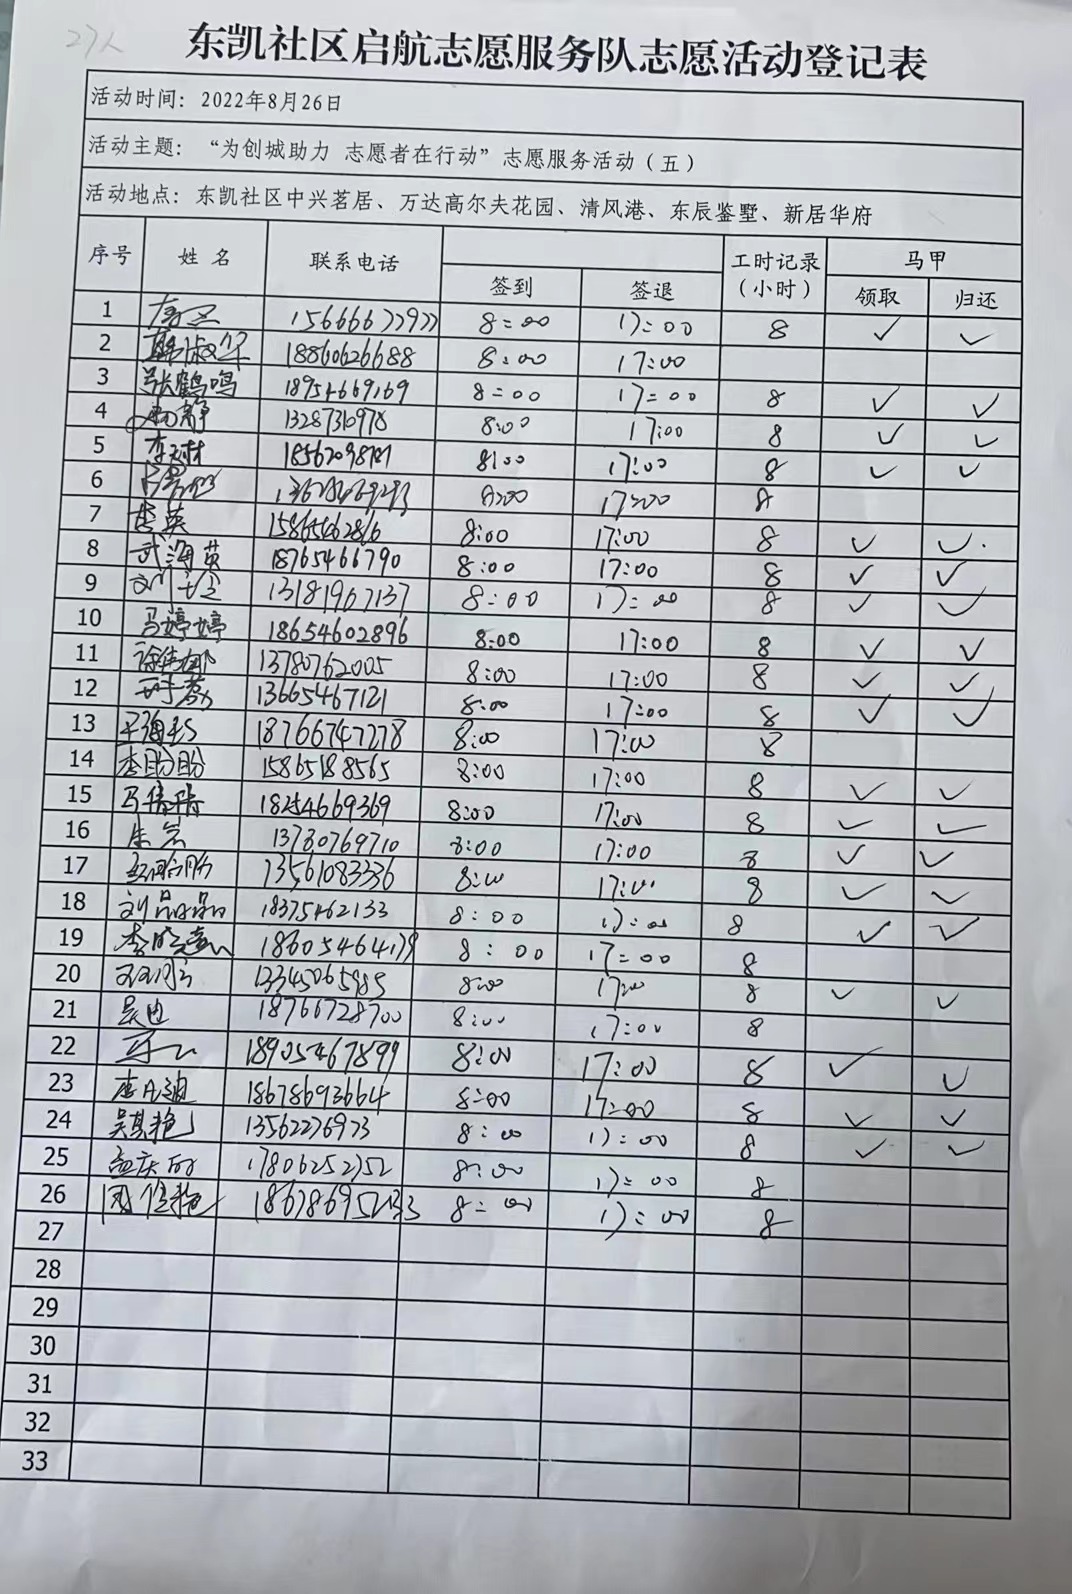 27人
东凯社区启航志愿服务队志愿活动登记表
活动时间：2022年8月26日
活动主题：“为创城助力 志愿者在行动”志愿服务活动（五）
活动地点：东凯社区中兴茗居、万达高尔夫花园、清风港、东辰鉴墅、新居华府
序号 姓名 联系电话 签到 签退 工时记录（小时） 马甲 领取 归还
1 15666677977 8:00 17:00 8 ✓ ✓
2 韩淑华 18860626688 8:00 17:00
3 张鹤鸣 18954669169 8:00 17:00 8 ✓ ✓
4 杨静 13287310978 8:00 17:00 8 ✓ ✓
5 李天林 8:00 17:00 8 ✓ ✓
6 8:00 17:00 8
7 李英 15865462816 8:00 17:00 8 ✓ ✓
8 武海英 18765466790 8:00 17:00 8 ✓ ✓
9 13181967137 8:00 17:00 8 ✓ ✓
10 马婷婷 18654602896 8:00 17:00 8 ✓ ✓
11 徐伟娜 13780762005 8:00 17:00 8 ✓ ✓
12 13665467121 8:00 17:00 8 ✓ ✓
13 18766747278 8:00 17:00 8
14 李盼盼 15865188565 8:00 17:00 8 ✓ ✓
15 马倩倩 18254669369 8:00 17:00 8 ✓ ✓
16 13780769710 8:00 17:00 8 ✓ ✓
17 13561083336 8:00 17:00 8 ✓ ✓
18 刘晶晶 18375462133 8:00 17:00 8 ✓ ✓
19 18605464179 8:00 17:00 8
20 13345065985 8:00 17:00 8 ✓ ✓
21 吴迪 18766728700 8:00 17:00 8
22 18905467899 8:00 17:00 8 ✓ ✓
23 18678693664 8:00 17:00 8 ✓ ✓
24 吴其艳 13562276973 8:00 17:00 8 ✓ ✓
25 17806252752 8:00 17:00 8
26 8:00 17:00 8
27
28
29
30
31
32
33